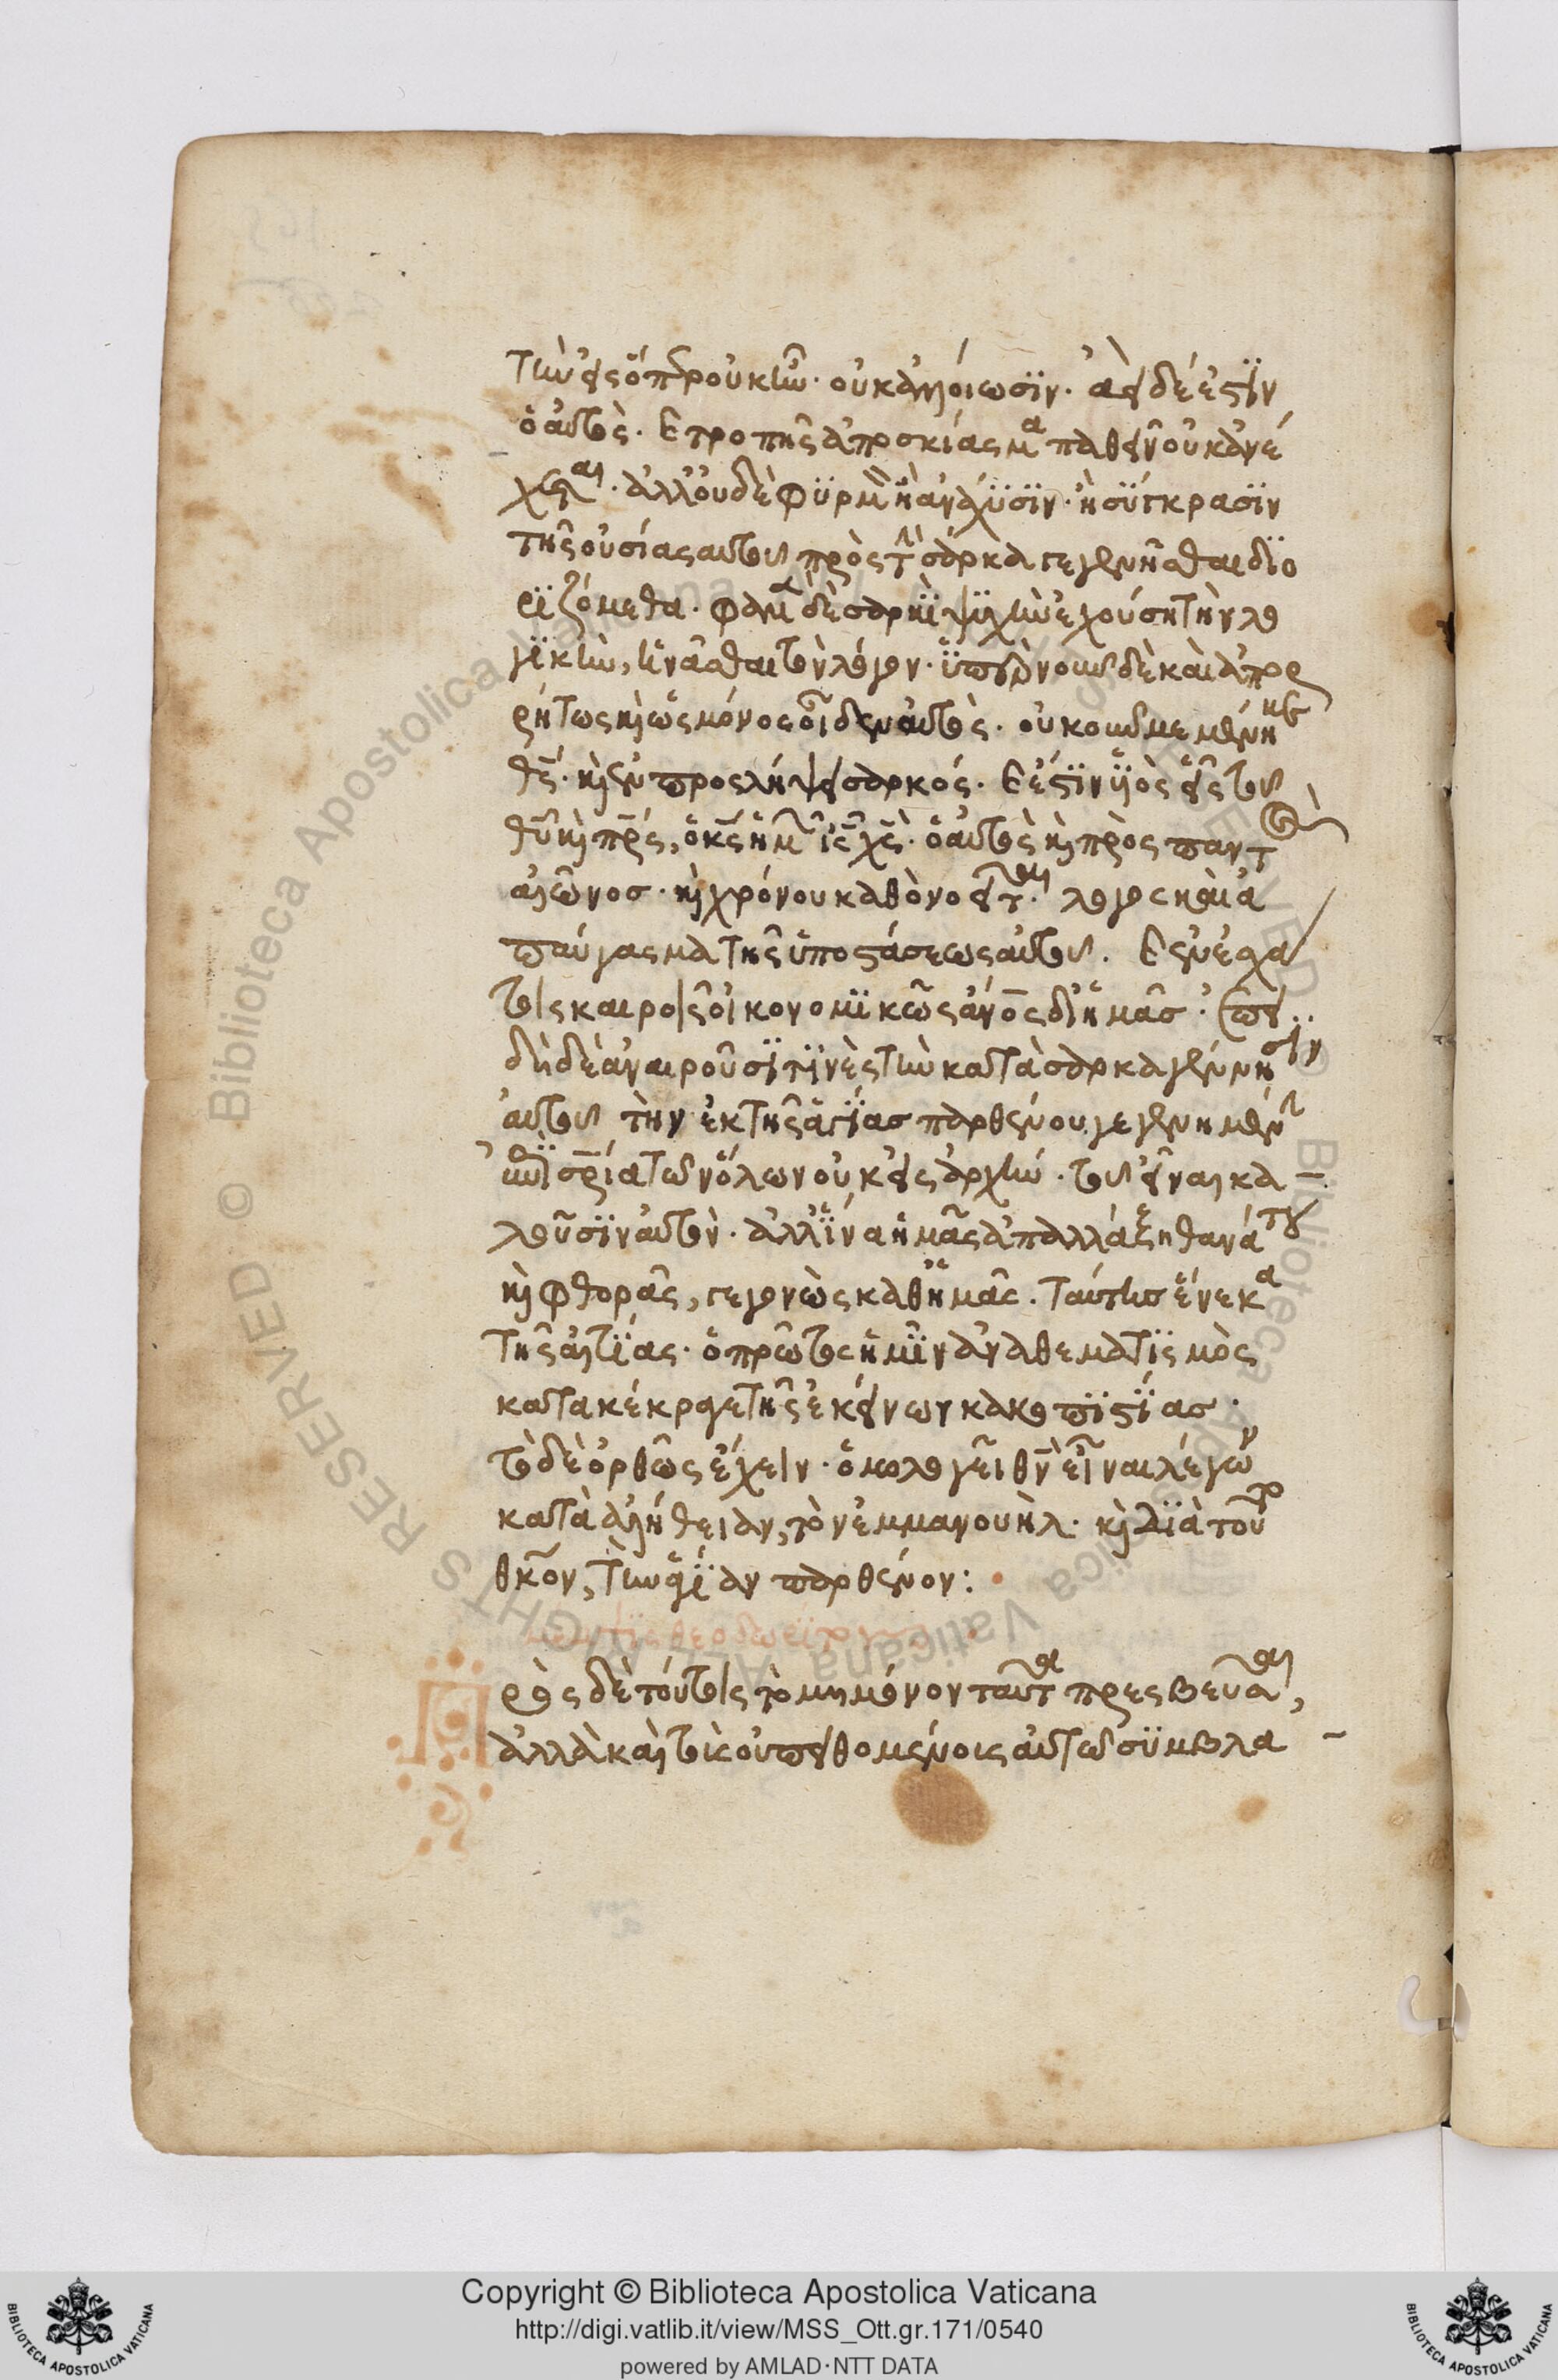 τὴν εἰς ὅπερ οὐκ ἦν· οὐκ ἀλλοίωσιν· ἀεὶ δέ ἐστιν
ὁ αὐτὸς· τροπῆς ἀποσκίασμα παθεῖν οὐκ ἀνέ
χεται· ἀλλ' οὐδὲ φυρμὸν ἢ ἀνάχυσιν· ἢ σύγκρασιν
τῆς οὐσίας αὐτοῦ πρὸς τὴν σάρκα γεγενῆσθαι διο
ριζόμεθα· φαμὲν δὲ σαρκὶ ψυχὴν ἐχούσῃ τὴν λο
γικὴν, ἑνῶσθαι τὸν λόγον· ὑπὲρ νοῦν δὲ καὶ ἀπορ
ρήτως καὶ ὡς μόνος οἶδεν αὐτὸς· οὐκοῦν μεμένηκε
θς· καὶ ἐν προσλήψει σαρκός· ἔστιν υἱὸς εἷς τοῦ
θυ καὶ πρς, ὁ κς ἡμῶν ις χς· ὁ αὐτὸς καὶ πρὸς παντὸς
αἰῶνος· καὶ χρόνου καθὸ νοεῖται· λόγος καὶ ἀ
παύγασμα τῆς ὑποστάσεως αὐτοῦ. ἐν ἐσχά
τοις καιροῖς οἰκονομικῶς ανος δι' ἡμᾶς· ἐπει
δὴ δὲ ἀναιροῦσί τινὲς τὴν κατὰ σάρκα γέννησιν
αὐτοῦ τὴν ἐκ τῆς ἁγίας παρθένου γεγενημένην
ἐπὶ σρία τῶν ὅλων οὐκ εἰς ἀρχὴν· τοῦ εἶναι κα
λοῦσιν αὐτὸν· ἀλλ' ἵνα ἡμᾶς ἀπαλλάξῃ θανάτου
καὶ φθορᾶς, γεγονὼς καθ' ἡμᾶς. ταύτης ἕνεκα
τῆς αἰτίας· ὁ πρῶτος ἡμῖν ἀναθεματισμὸς
κατακέκραγε τῆς ἐκείνων κακοπιστίας·
τὸ δὲ ὀρθῶς ἔχειν· ὁμολογεῖ θν εἶναι λέγων
κατὰ ἀλήθειαν, τὸν ἐμμανουὴλ· καὶ διὰ τοῦτο
θκον, τὴν ἁγίαν παρθένον:
Πρὸς δὲ τούτοις ταῦτα πρεσβεῦσαι,
ἀλλὰ καὶ τοῖς οὐ πειθομένοις αὐτῶ συμβλα
Copyright © Biblioteca Apostolica Vaticana
http://digi.vatlib.it/view/MSS_Ott.gr.171/0540
powered by AMLAD·NTT DATA